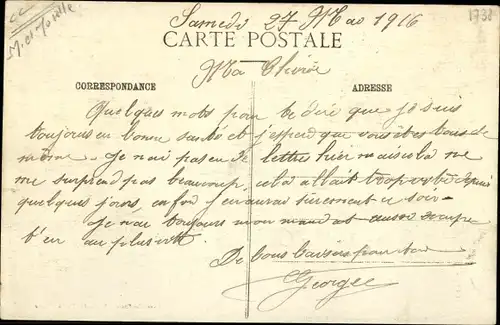 cc
M. et Moselle
1738
Samedi 27 Mai 1916
CARTE POSTALE
Ma Chérie
CORRESPONDANCE
ADRESSE
Quelques mots pour te dire que je suis
toujours en bonne santé et j'esperd que vous êtes tous de
même. Je n'ai pas eu de lettre hier mais cela ne
me surprend pas beaucoup, cela allait trop bien depuis
quelques jours, enfin j'en aurai surement ce soir
Je n'ai toujours mon mandat aussi
t'en au plus vite.
De bons baisers pour toi
Georges